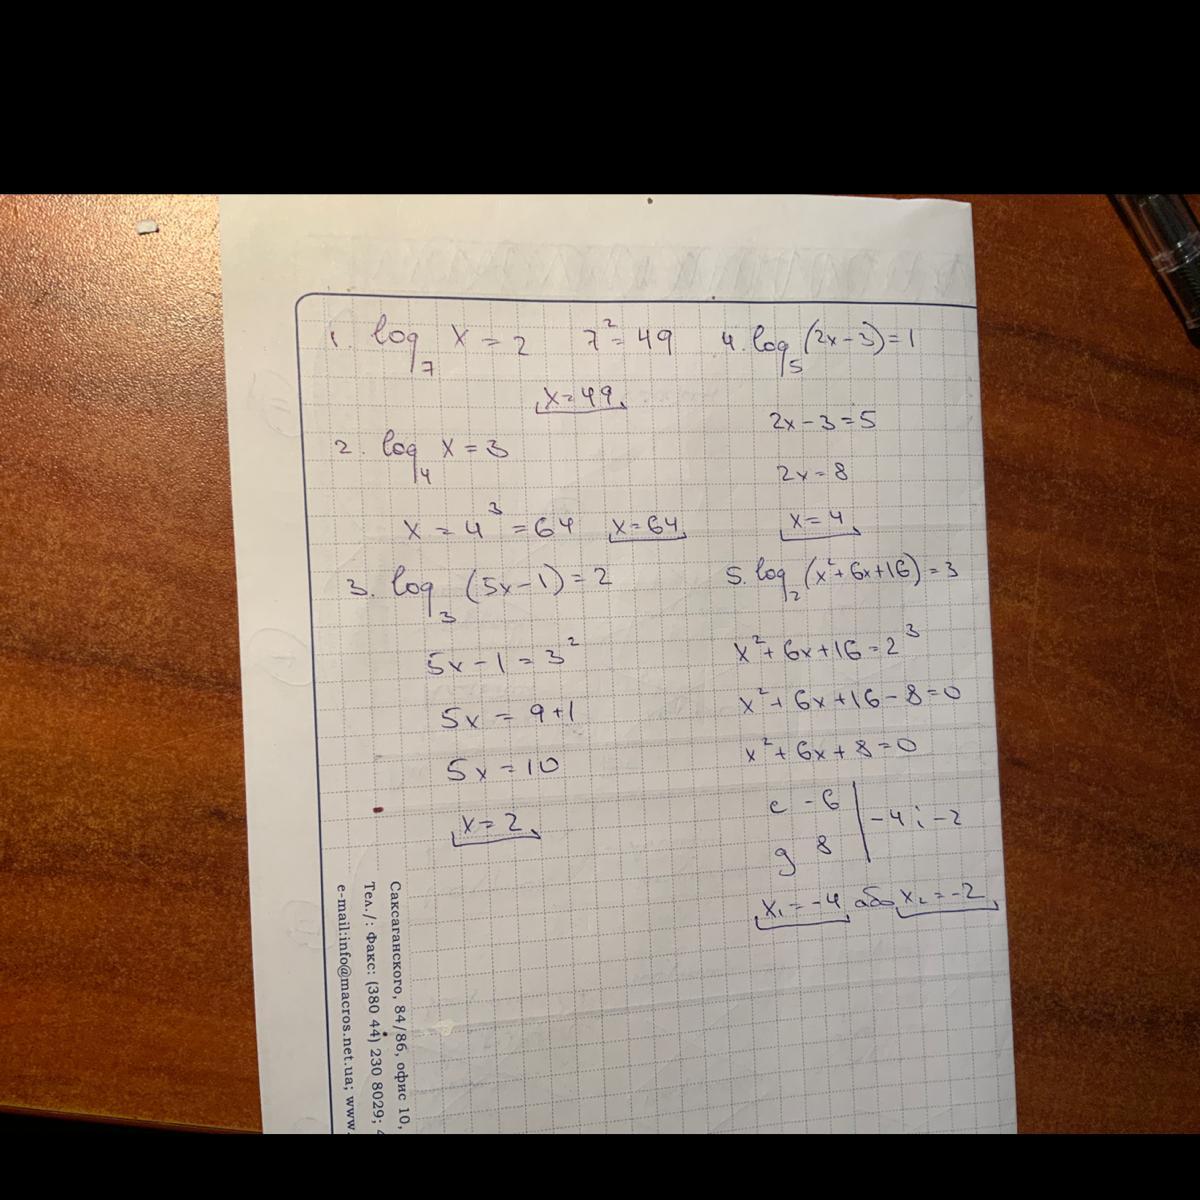 1. log₇ x = 2   7² = 49
x = 49
2. log₄ x = 3
x = 4³ = 64   x = 64
3. log₃ (5x - 1) = 2
5x - 1 = 3²
5x = 9 + 1
5x = 10
x = 2
4. log₅ (2x - 3) = 1
2x - 3 = 5
2x = 8
x = 4
5. log₂ (x² + 6x + 16) = 3
x² + 6x + 16 = 2³
x² + 6x + 16 - 8 = 0
x² + 6x + 8 = 0
c - 6 | -4 i -2
g 8
x₁ = -4 або x₂ = -2
Саксаганского, 84/86, офис 10,
Тел./: Факс: (380 44) 230 8029;
e-mail:info@macros.net.ua; www.